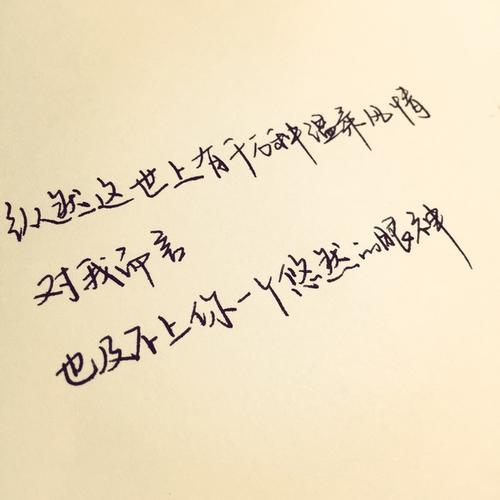 纵然这世上有千百种温柔风情
对我而言
也及不上你一丫悠然的眼神